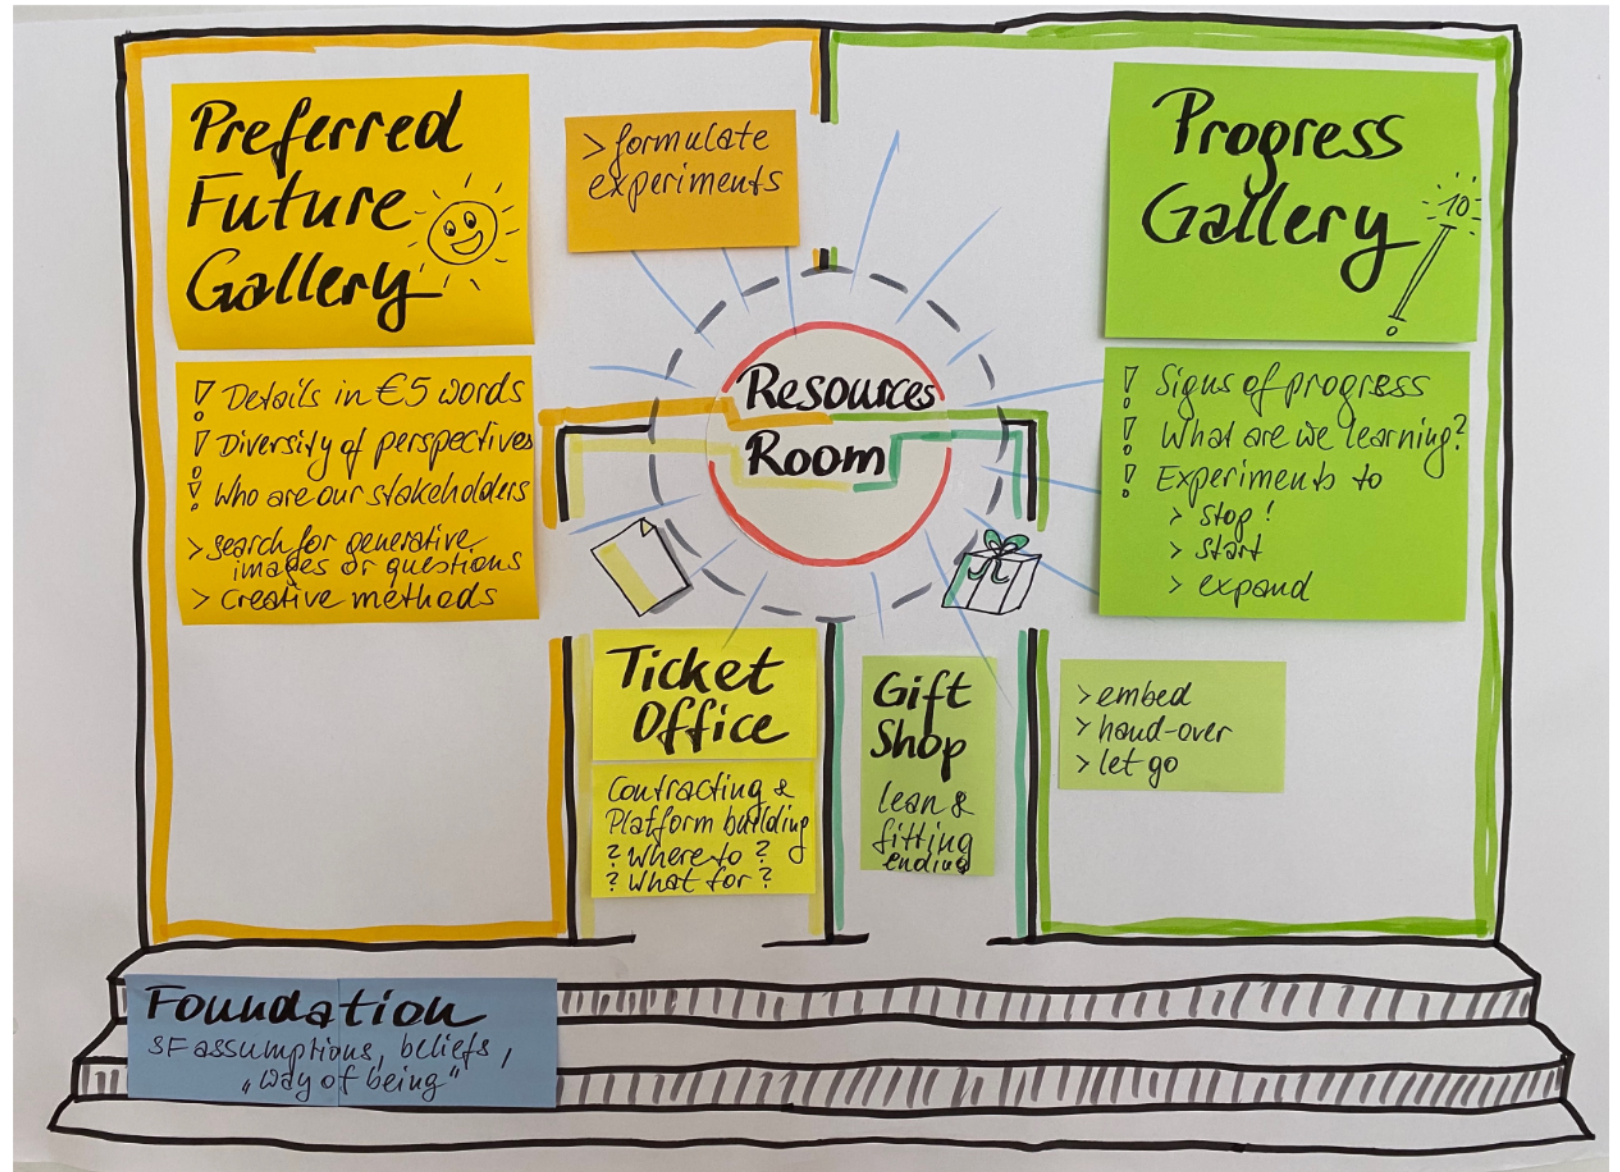 Preferred
Future
Gallery
! Details in €5 words
! Diversity of perspectives
! Who are our stakeholders
> search for generative
images or questions
> creative methods
> formulate
experiments
Progress
Gallery
10
0
! Signs of progress
! What are we learning?
! Experiments to
> stop!
> start
> expand
Resources
Room
Ticket
Office
Contracting &
Platform building
? Where to ?
? What for ?
Gift
Shop
lean &
fitting
ending
> embed
> hand-over
> let go
Foundation
SF assumptions, beliefs,
„way of being"